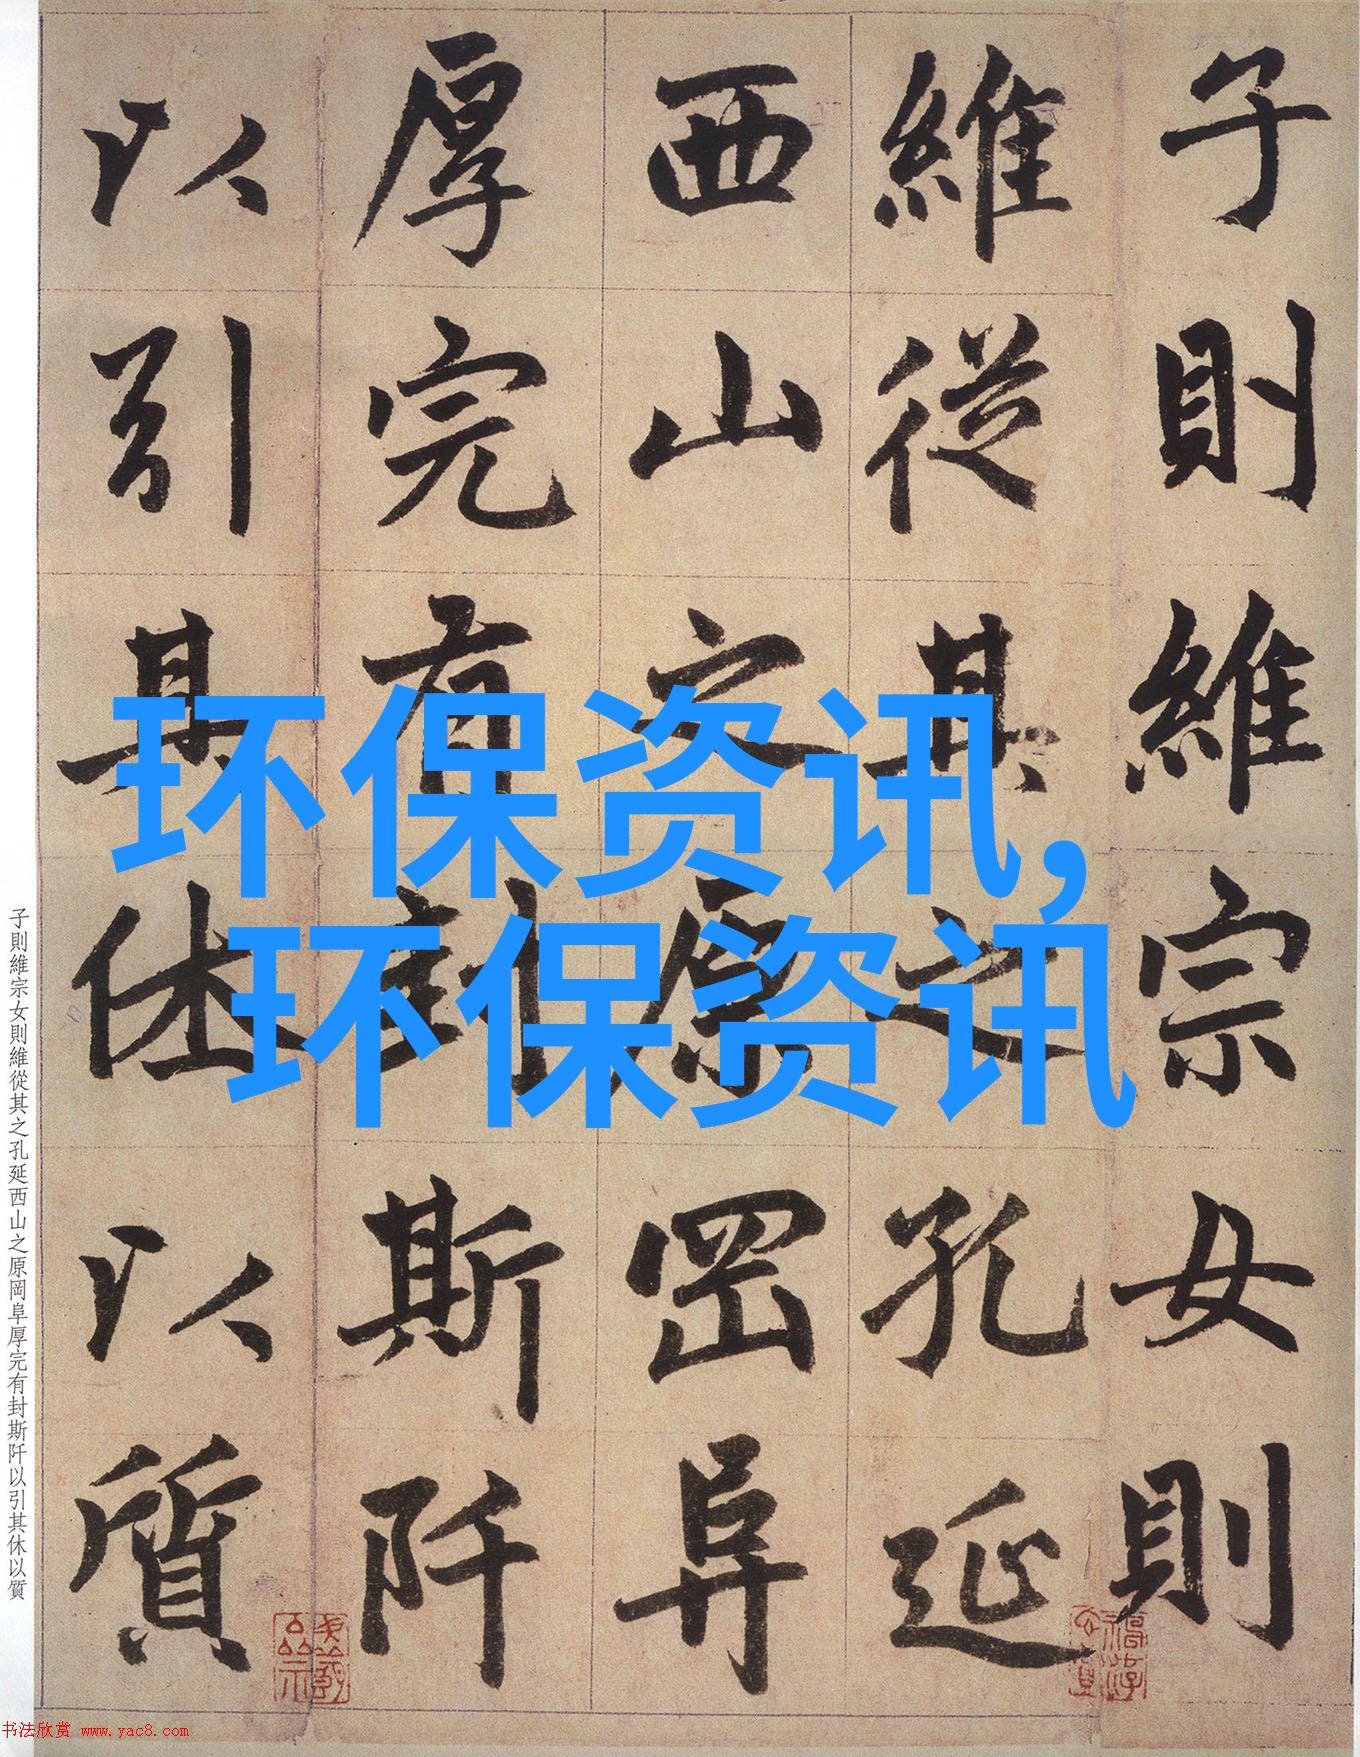 子則維宗女則
維從其之孔延
西山之原岡阜
厚完有封斯阡
以引其休以質
环保资讯,
环保资讯
子則維宗女則維從其之孔延西山之原岡阜厚完有封斯阡以引其休以質
书法欣赏 www.yac8.com